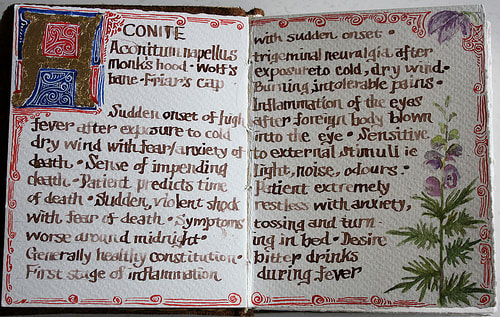 A
CONITE
Aconitum napellus
monk's hood · Wolf's
bane · Friar's cap
Sudden onset of high
fever after exposure to cold
dry wind with fear/anxiety of
death · Sense of impending
death · Patient predicts time
of death · Sudden, violent shock
with fear of death · Symptoms
worse around midnight ·
Generally healthy constitution ·
First stage of inflammation
with sudden onset ·
trigeminal neuralgia after
exposure to cold, dry wind ·
Burning, intolerable pains ·
Inflammation of the eyes
after foreign body blown
into the eye · Sensitive
to external stimuli ie
light, noise, odours ·
Patient extremely
restless with anxiety,
tossing and turn-
ing in bed · Desire
bitter drinks
during fever